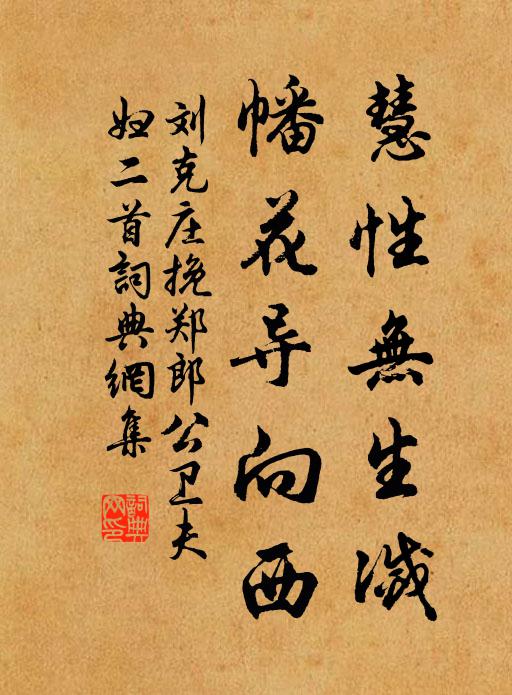 慧性無生滅
幡花导向西
刘克庄挽郑郎公卫夫
妇二首詞典網集
詞典網印